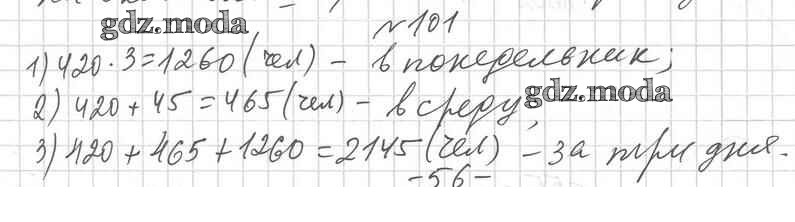 gdz.moda
№101
1) 420 · 3 = 1260 (чел) – в понедельник;
2) 420 + 45 = 465 (чел) – в среду;
gdz.moda
3) 420 + 465 + 1260 = 2145 (чел) – за три дня.
-56-